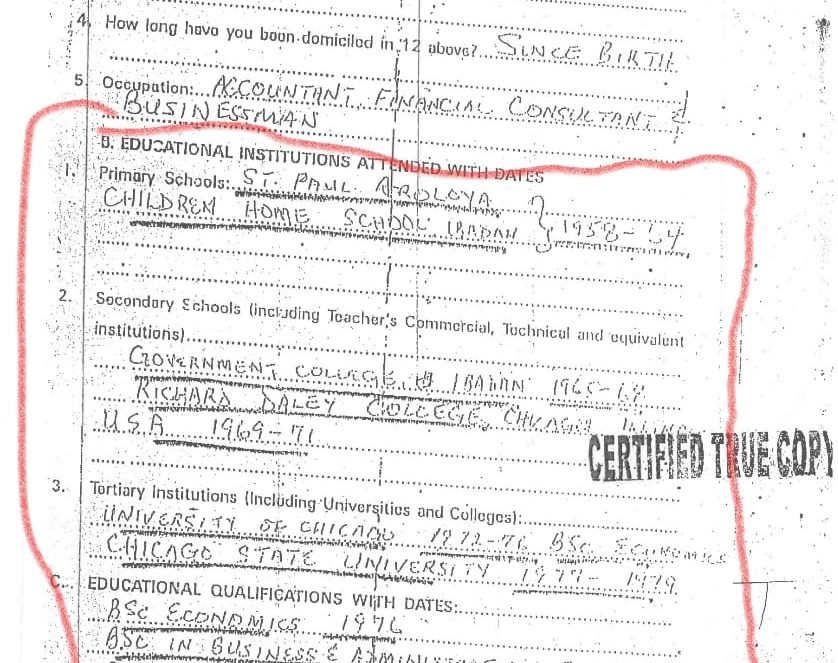 4. How long have you been domiciled in 12 above? SINCE BIRTH
5. Occupation: ACCOUNTANT, FINANCIAL CONSULTANT &
BUSINESSMAN
B. EDUCATIONAL INSTITUTIONS ATTENDED WITH DATES
1. Primary Schools: ST. PAUL AROLOYA
CHILDREN HOME SCHOOL IBADAN } 1958-64
2. Secondary Schools (including Teacher's Commercial, Technical and equivalent
institutions)
GOVERNMENT COLLEGE, IBADAN 1965-68
RICHARD DALEY COLLEGE, CHICAGO
U.S.A. 1969-71
CERTIFIED TRUE COPY
3. Tertiary Institutions (Including Universities and Colleges):
UNIVERSITY OF CHICAGO 1972-76 BSc ECONOMICS
CHICAGO STATE UNIVERSITY 1977-1979
C. EDUCATIONAL QUALIFICATIONS WITH DATES:
BSc ECONOMICS 1976
BSC IN BUSINESS &